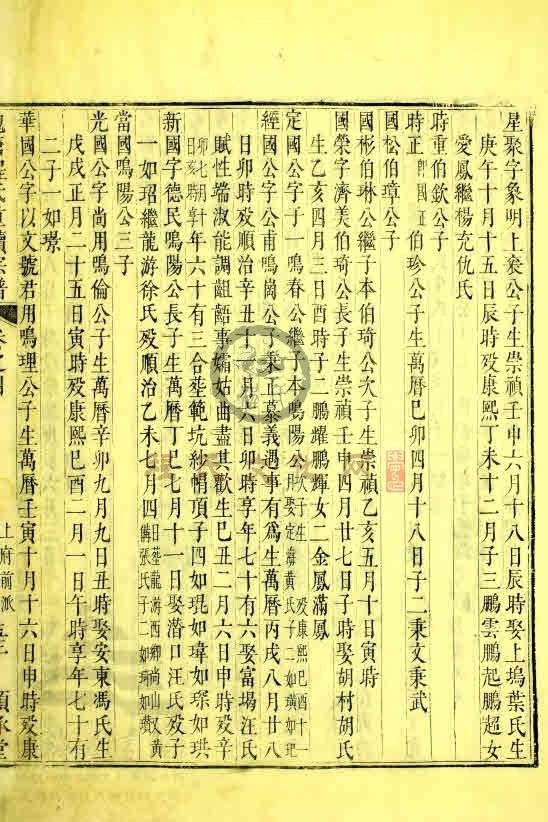 星聚字象明上袞公子生崇禎壬申六月十八日辰時娶上塢葉氏生
庚午十月十五日辰時歿康熙丁未十二月子三鵬雲鵬起鵬超女
愛鳳繼楊充仇氏
時重伯欽公子
時正即國正伯珍公子生萬曆己卯四月十八日子二秉文秉武
國松伯璋公子
國彬伯琳公繼子本伯琦公次子生崇禎乙亥五月十日寅時
國榮字濟美伯琦公長子生崇禎壬申四月廿七日子時娶胡村胡氏
生乙亥四月三日酉時子二鵬耀鵬輝女二金鳳滿鳳
定國公字于一鳴春公繼子本鳴陽公次子生歿康熙己酉十一月娶定海黃氏子二如璜如玘
經國公字公甫鳴崗公子秉正慕義遇事有爲生萬曆丙戌八月廿八
日卯時歿順治辛丑十一月六日卯時享年七十有六娶富堨汪氏
賦性端淑能調齟齬事孀姑曲盡其歡生己丑二月六日申時歿辛
卯七月十日亥時享年六十有三合塟範坑紗帽頂子四如琨如瑋如琛如珙
新國字德民鳴陽公長子生萬曆丁巳七月十一日娶潛口汪氏歿子
一如玿繼龍游徐氏歿順治乙未七月四日塟龍游西鄉尚山又黃備張氏子二如琦如瓚
當國鳴陽公三子
光國公字尚用鳴倫公子生萬曆辛卯九月九日丑時娶安東馮氏生
戊戌正月二十五日寅時歿康熙己酉二月一日午時享年七十有
二子一如璟
華國公字以文號君用鳴理公子生萬曆壬寅十月十六日申時歿康
上府前派